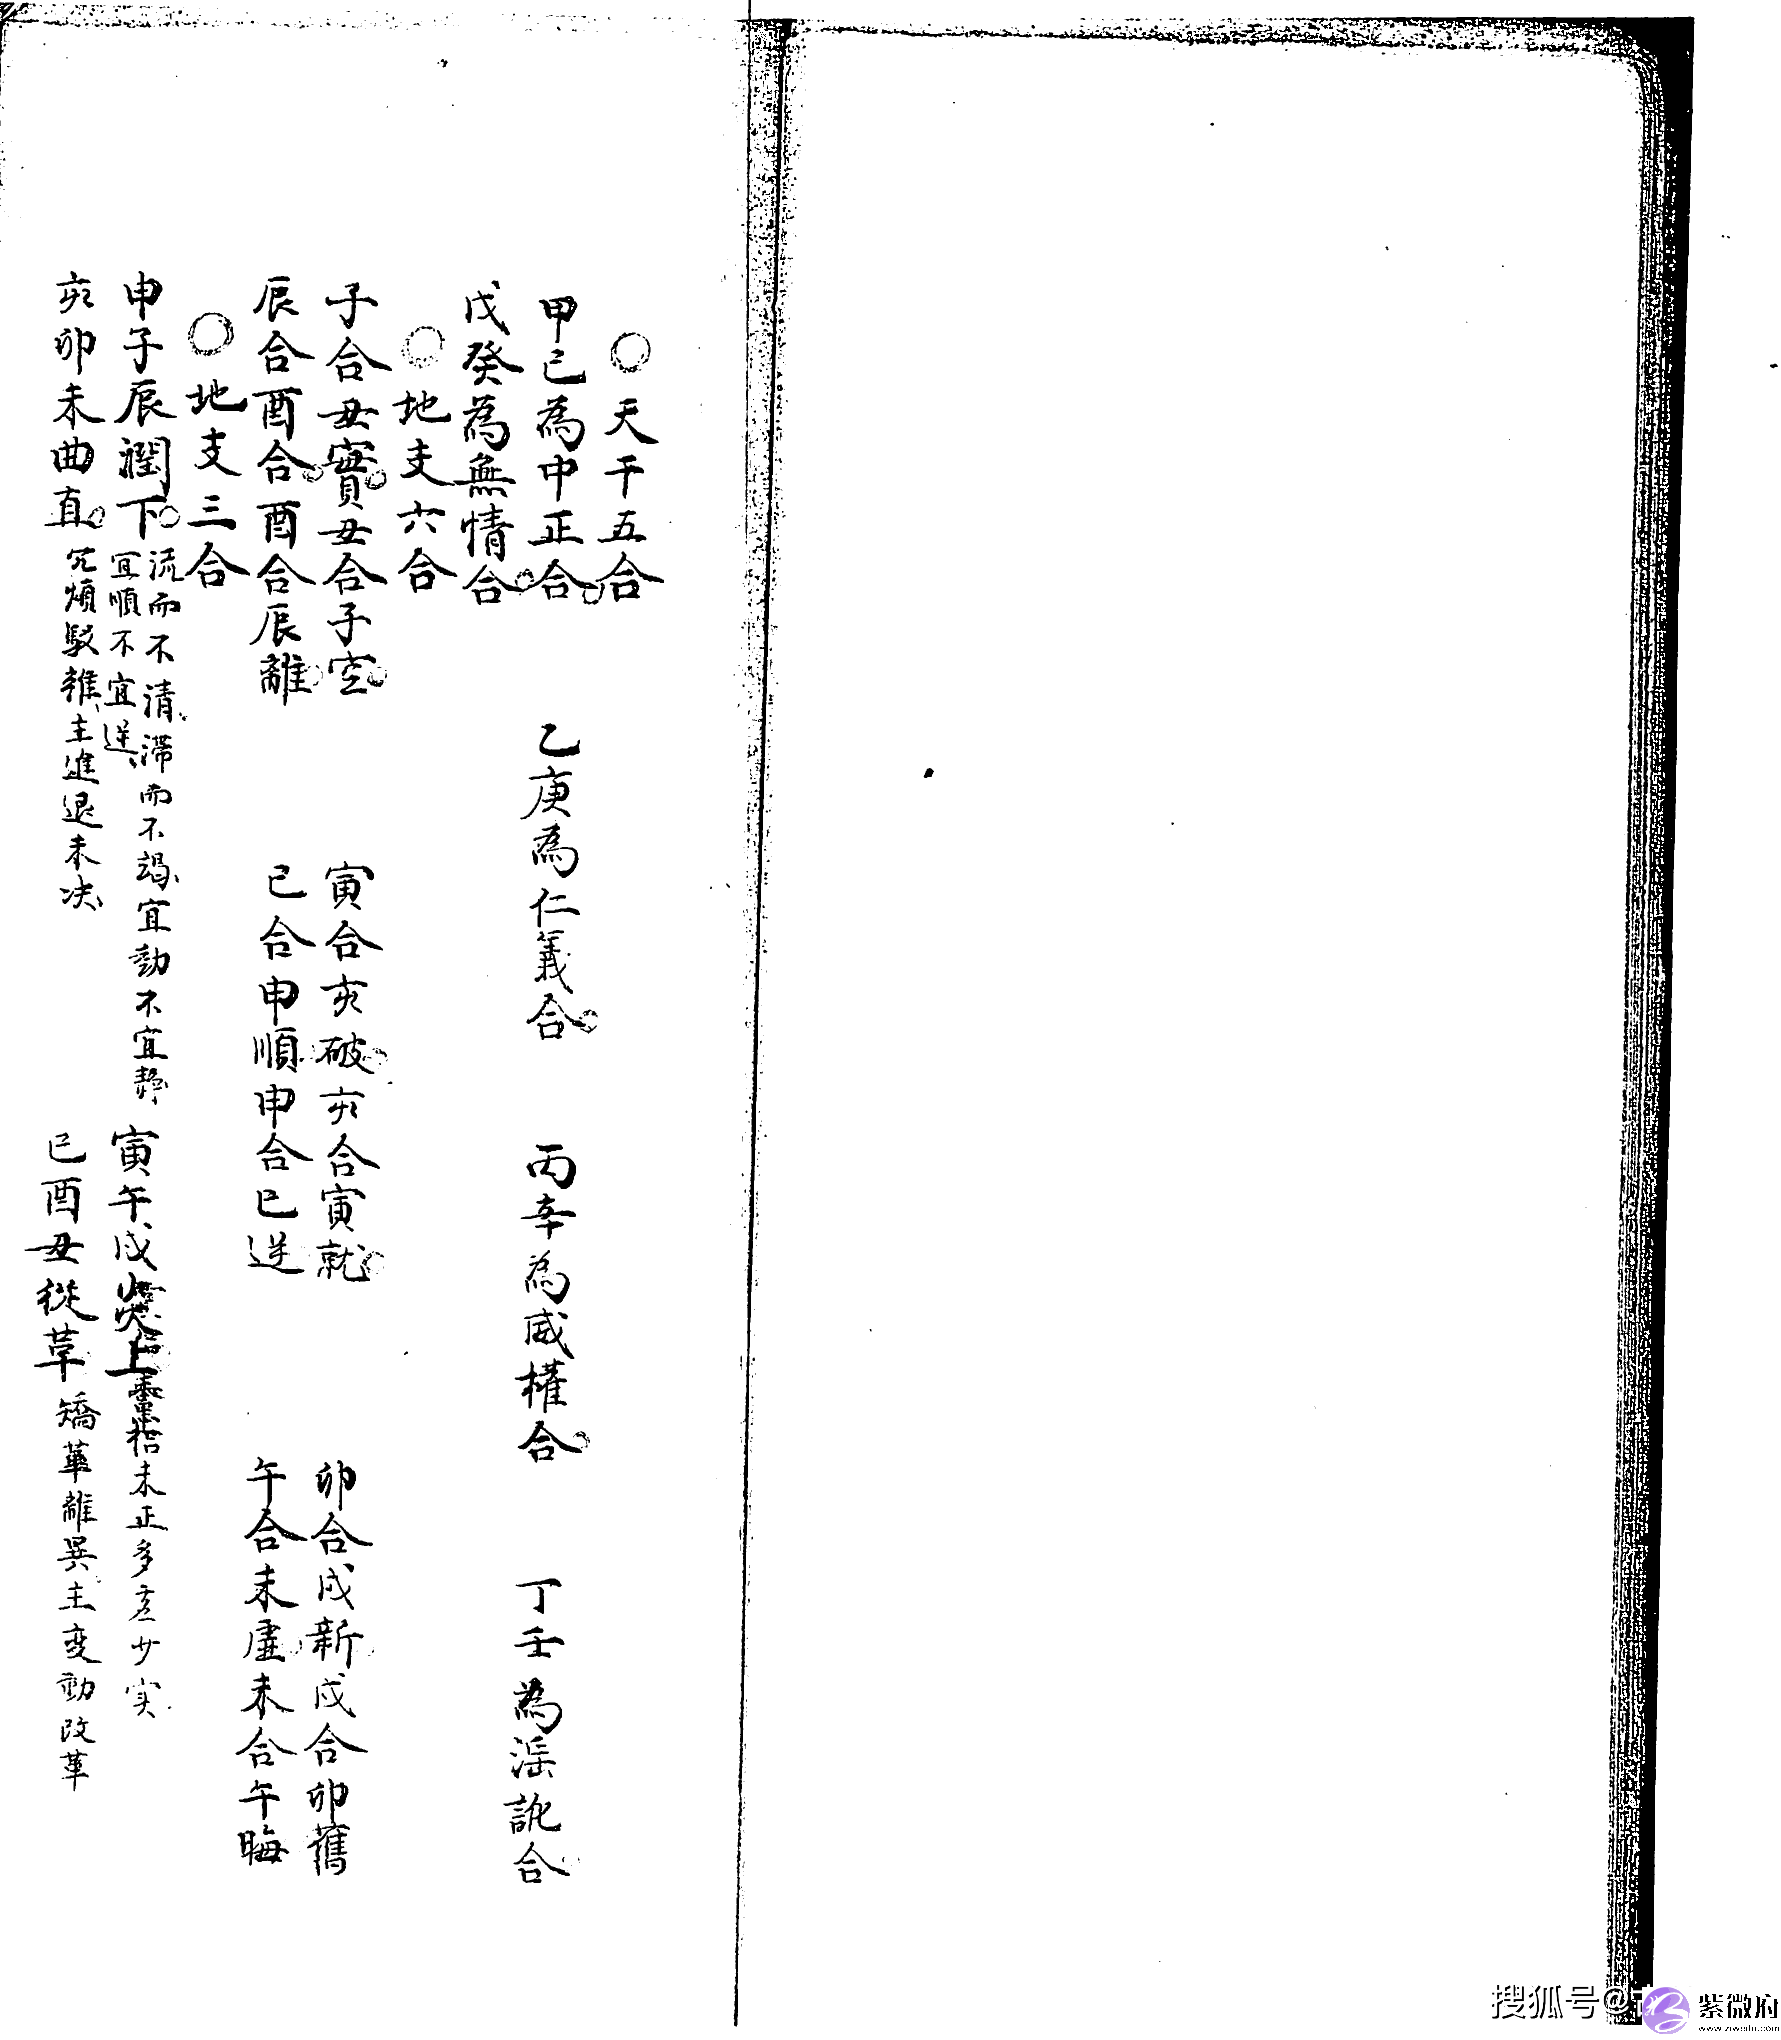 ○天干五合
甲己為中正合 乙庚為仁義合 丙辛為威權合 丁壬為滛訛合
戊癸為無情合
○地支六合
子合丑實丑合子空 寅合亥破亥合寅就 卯合戌新戌合卯舊
辰合酉合酉合辰離 巳合申順申合巳逆 午合未虛未合午晦
○地支三合
申子辰潤下 流而不清滞而不竭宜動不宜静宜順不宜逆 寅午戌炎上 未正多虚少实
亥卯未曲直 冗煩駁雜主進退未决 巳酉丑從革 矯革離異主变動改革
搜狐号@
紫微府
www.ziweifu.com